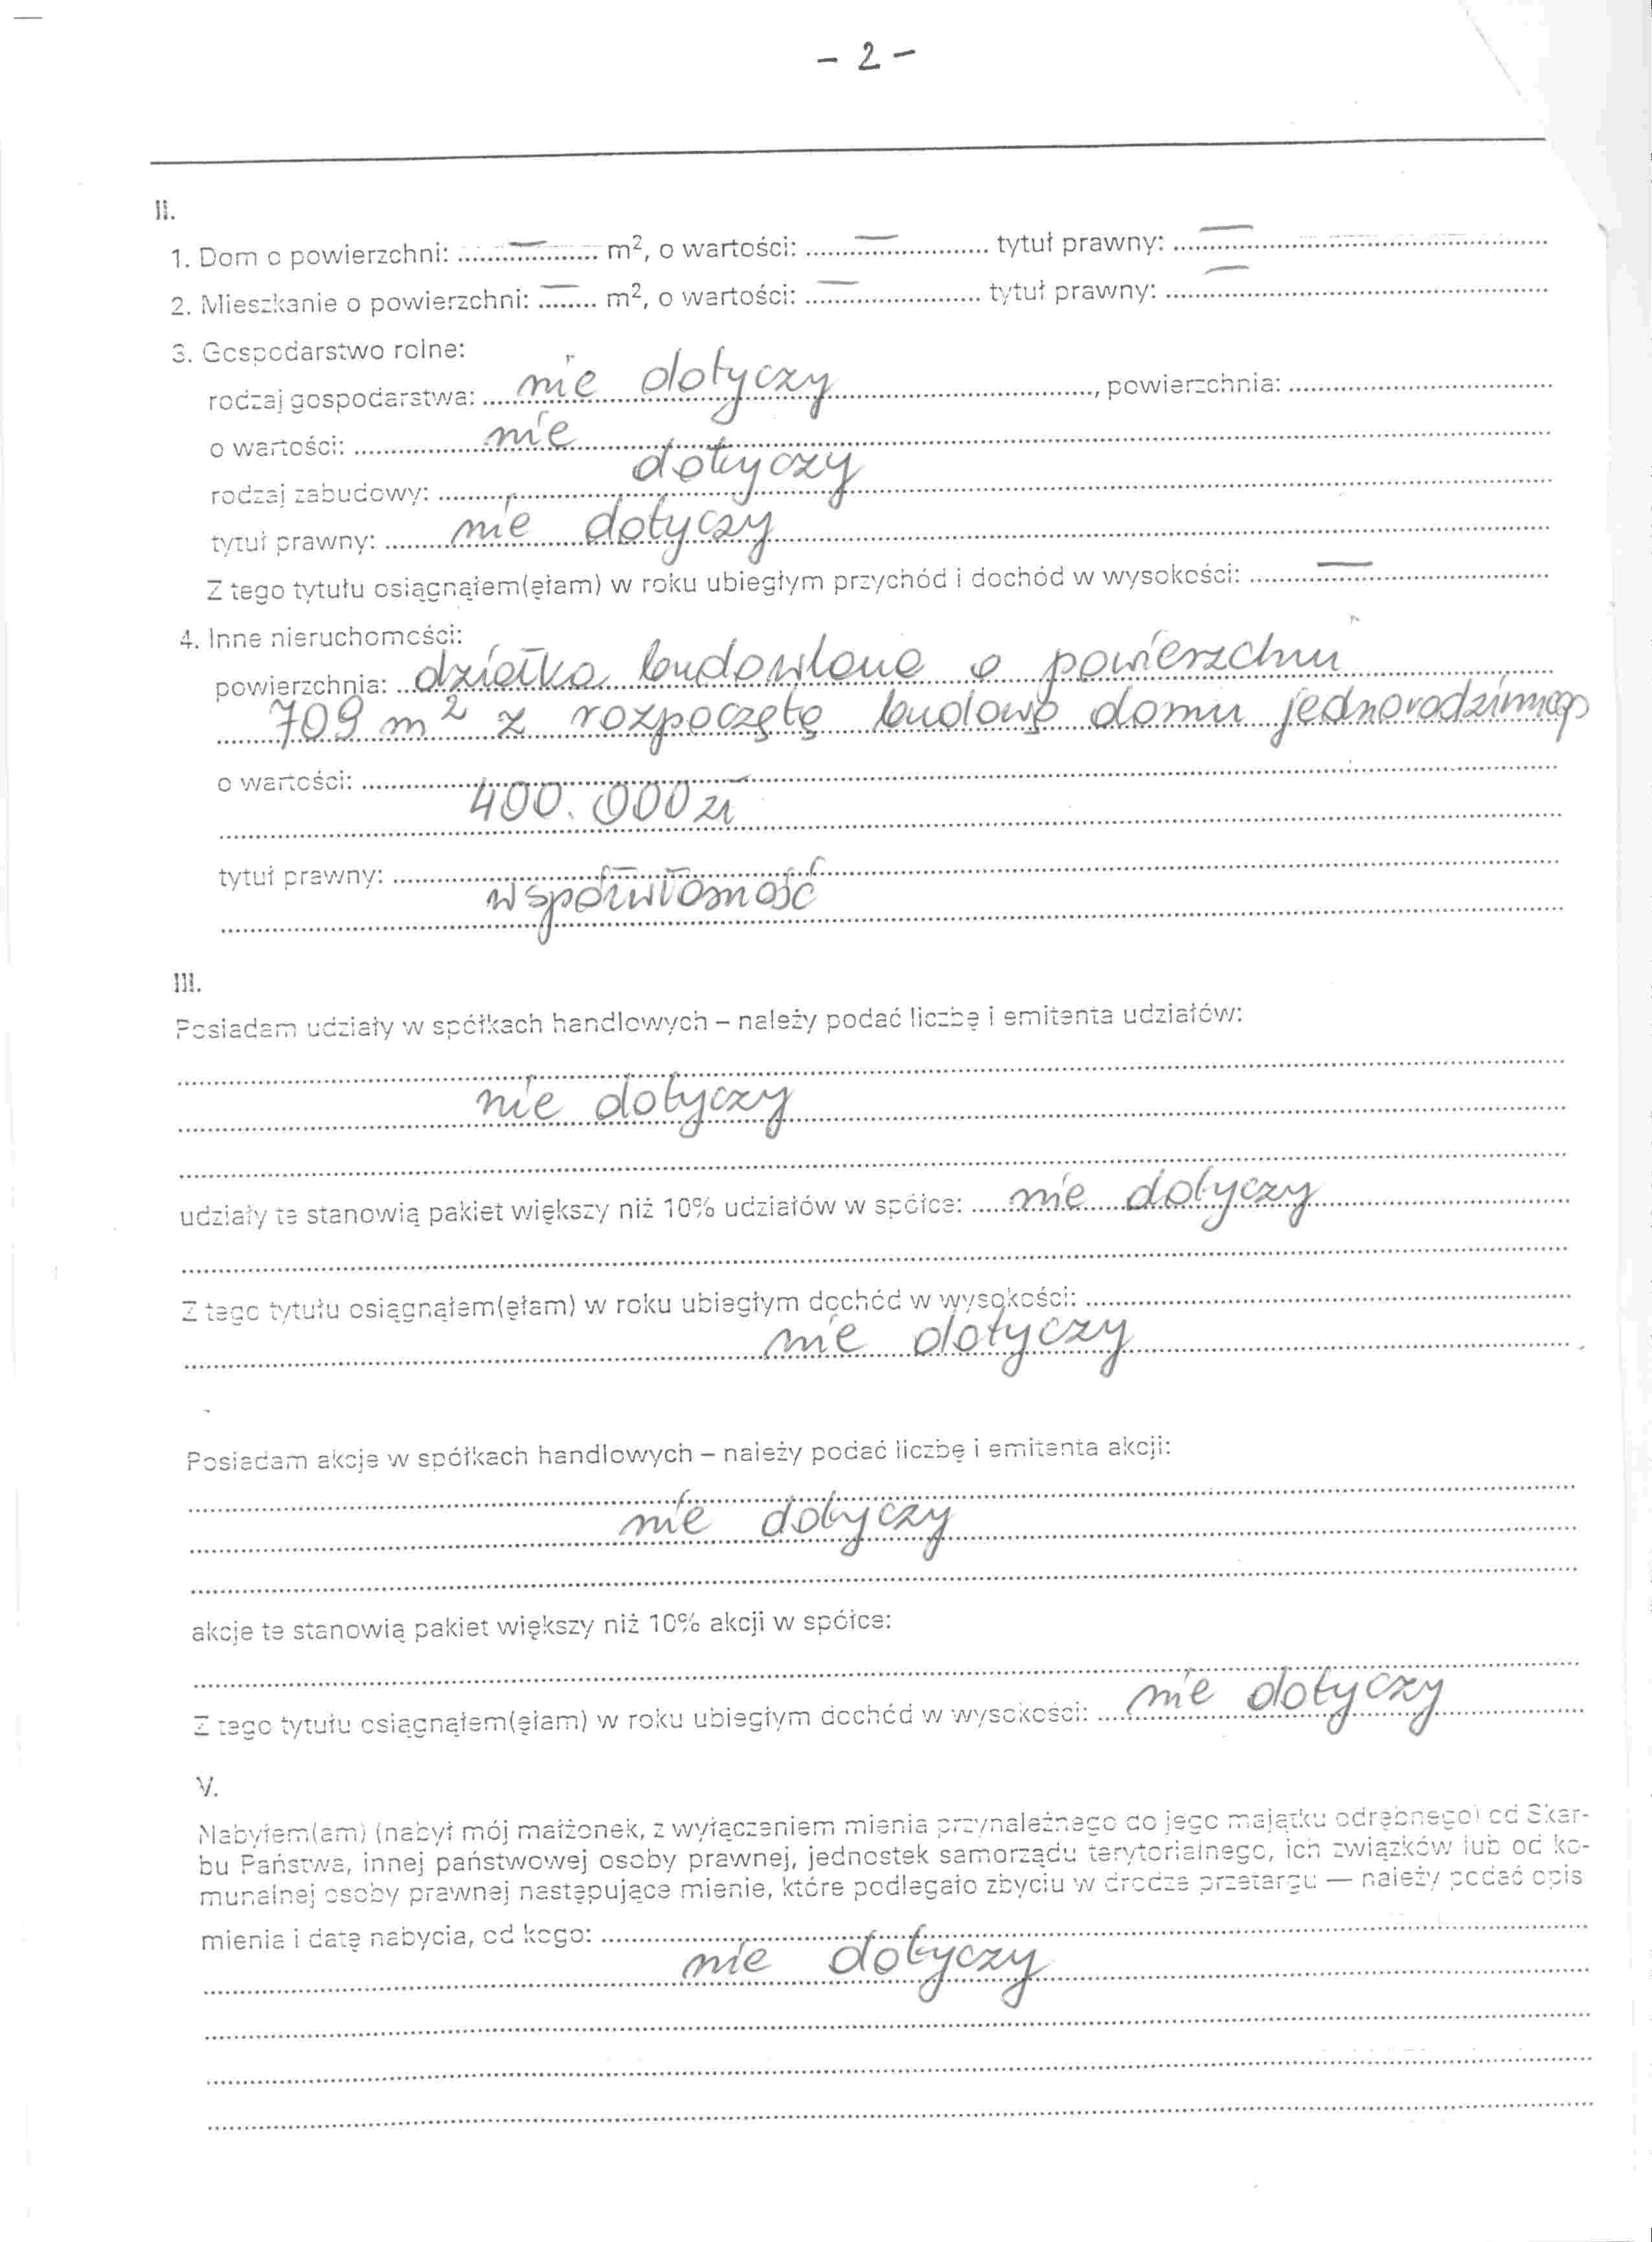 - 2 -
II.
1. Dom o powierzchni: — m², o wartości: — tytuł prawny: —
2. Mieszkanie o powierzchni: — m², o wartości: — tytuł prawny: —
3. Gospodarstwo rolne:
rodzaj gospodarstwa: nie dotyczy, powierzchnia:
o wartości: nie dotyczy
rodzaj zabudowy:
tytuł prawny: nie dotyczy
Z tego tytułu osiągnąłem(ęłam) w roku ubiegłym przychód i dochód w wysokości: —
4. Inne nieruchomości:
powierzchnia: działka budowlana o powierzchni
709 m² z rozpoczętą budową domu jednorodzinnego
o wartości:
400.000 zł
tytuł prawny:
współwłasność
III.
Posiadam udziały w spółkach handlowych – należy podać liczbę i emitenta udziałów:
nie dotyczy
udziały te stanowią pakiet większy niż 10% udziałów w spółce: nie dotyczy
Z tego tytułu osiągnąłem(ęłam) w roku ubiegłym dochód w wysokości:
nie dotyczy
Posiadam akcje w spółkach handlowych – należy podać liczbę i emitenta akcji:
nie dotyczy
akcje te stanowią pakiet większy niż 10% akcji w spółce:
Z tego tytułu osiągnąłem(ęłam) w roku ubiegłym dochód w wysokości: nie dotyczy
V.
Nabyłem(am) (nabył mój małżonek, z wyłączeniem mienia przynależnego do jego majątku odrębnego) od Skar-
bu Państwa, innej państwowej osoby prawnej, jednostek samorządu terytorialnego, ich związków lub od ko-
munalnej osoby prawnej następujące mienie, które podlegało zbyciu w drodze przetargu — należy podać opis
mienia i datę nabycia, od kogo:
nie dotyczy